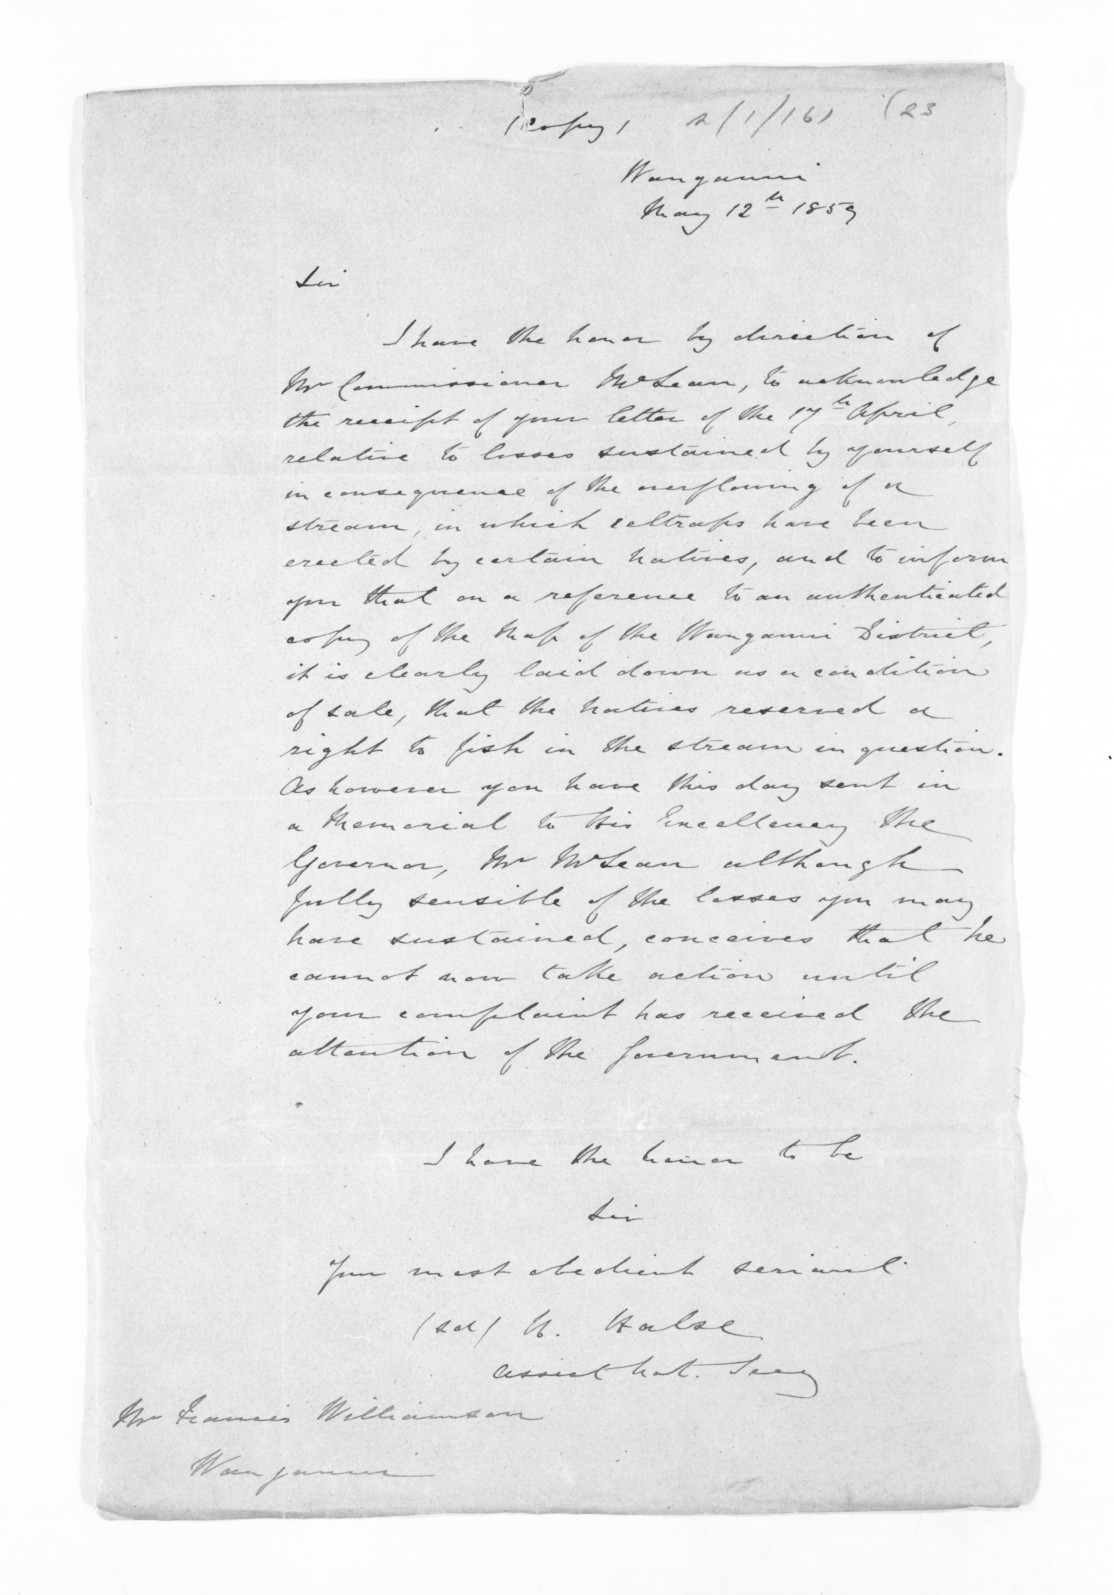 (copy) 2/1/161 (23
Wanganui
May 12th 1859
Sir
I have the honor by direction of
Mr Commissioner McLean, to acknowledge
the receipt of your letter of the 17th April,
relative to losses sustained by yourself
in consequence of the overflowing of a
stream, in which eeltraps have been
erected by certain natives, and to inform
you that on a reference to an authenticated
copy of the Map of the Wanganui District,
it is clearly laid down as a condition
of sale, that the natives reserved a
right to fish in the stream in question.
As however you have this day sent in
a Memorial to His Excellency the
Governor, Mr McLean although
fully sensible of the losses you may
have sustained, conceives that he
cannot now take action until
your complaint has received the
attention of the Government.
I have the honor to be
Sir
Your most obedient servant
(sd) H. Halse
Assist Nat. Secy
Mr Francis Williamson
Wanganui